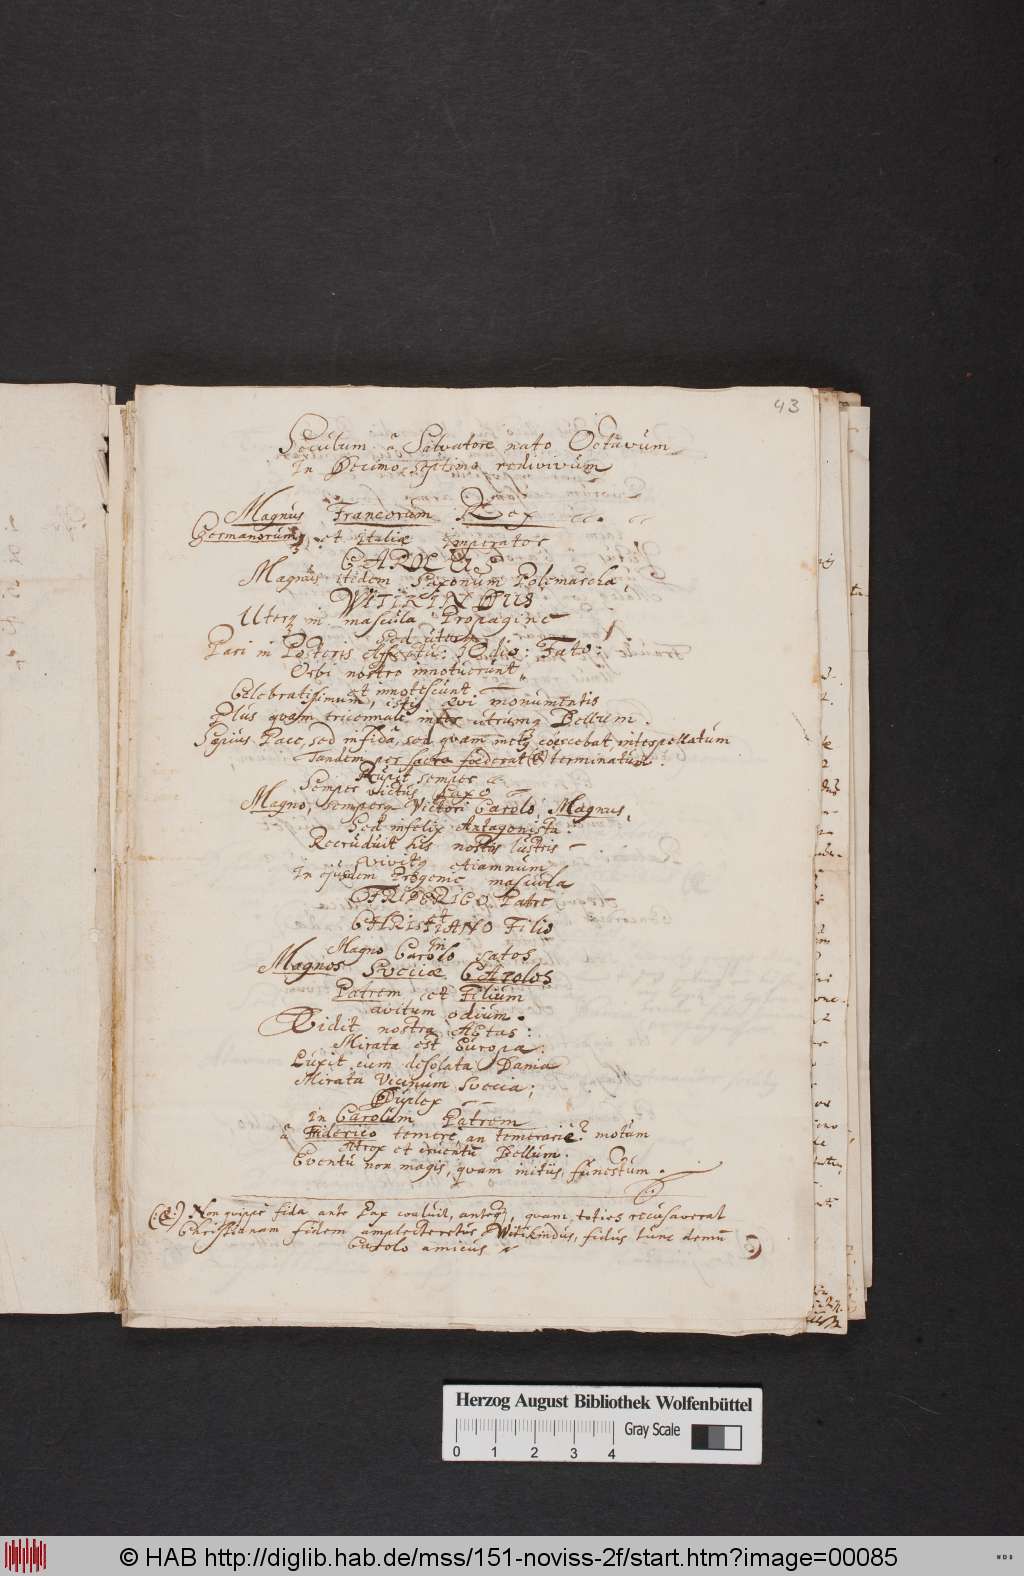 43
Seculum â Salvatore nato Octavum
In Decimo septimo redivivum
Magnus Francorum Rex
Germanorumq et Italiæ Imperator
CAROLUS
Magnus itidem Saxonum Polemarcha
WITIKINDUS
Uterq in mascula Propagine
Sed
Pari in Posteris Odio: Fato:
Orbi nostro innotuerunt
et innotescunt
Celebratissimum, istis ævi monumentis
Plus quam tricennale inter utrumq Bellum.
Sæpius Pace, sed infida, sed quam metq coercebat, interpellatum
Tandem per sacra foederat terminatum.
Rupit semper
Semper victus Saxo
Magno, semperq Victori Carolo Magnus,
Sed infelix Antagonista.
Recruduit his nostris lustris
Vivitq etiamnum
In ejusdem Progenie mascula
FRIDERICO Patre
CHRISTIANO Filio
in
Magno Carolo satos
Magnos Sveciæ CAROLOS
Patrem et Filium
avitum odium.
Vidit nostra Aetas:
Mirata est Europa:
Luxit eum desolata Dania
Mirata Vicinum Svecia;
Duplex
In Carolum Patrem
â Friderico temere, an temerarie? motum
Atrox et cruentu Bellum.
Eventu non magis, quam initiis, funestum.
Non quippe fida ante Pax coaluit, anteq, quam, toties recusaverat
Christianam fidem amplecteretur Witikindus, fidus tunc demu
Carolo amicus
Herzog August Bibliothek Wolfenbüttel
Gray Scale
0 1 2 3 4
© HAB http://diglib.hab.de/mss/151-noviss-2f/start.htm?image=00085